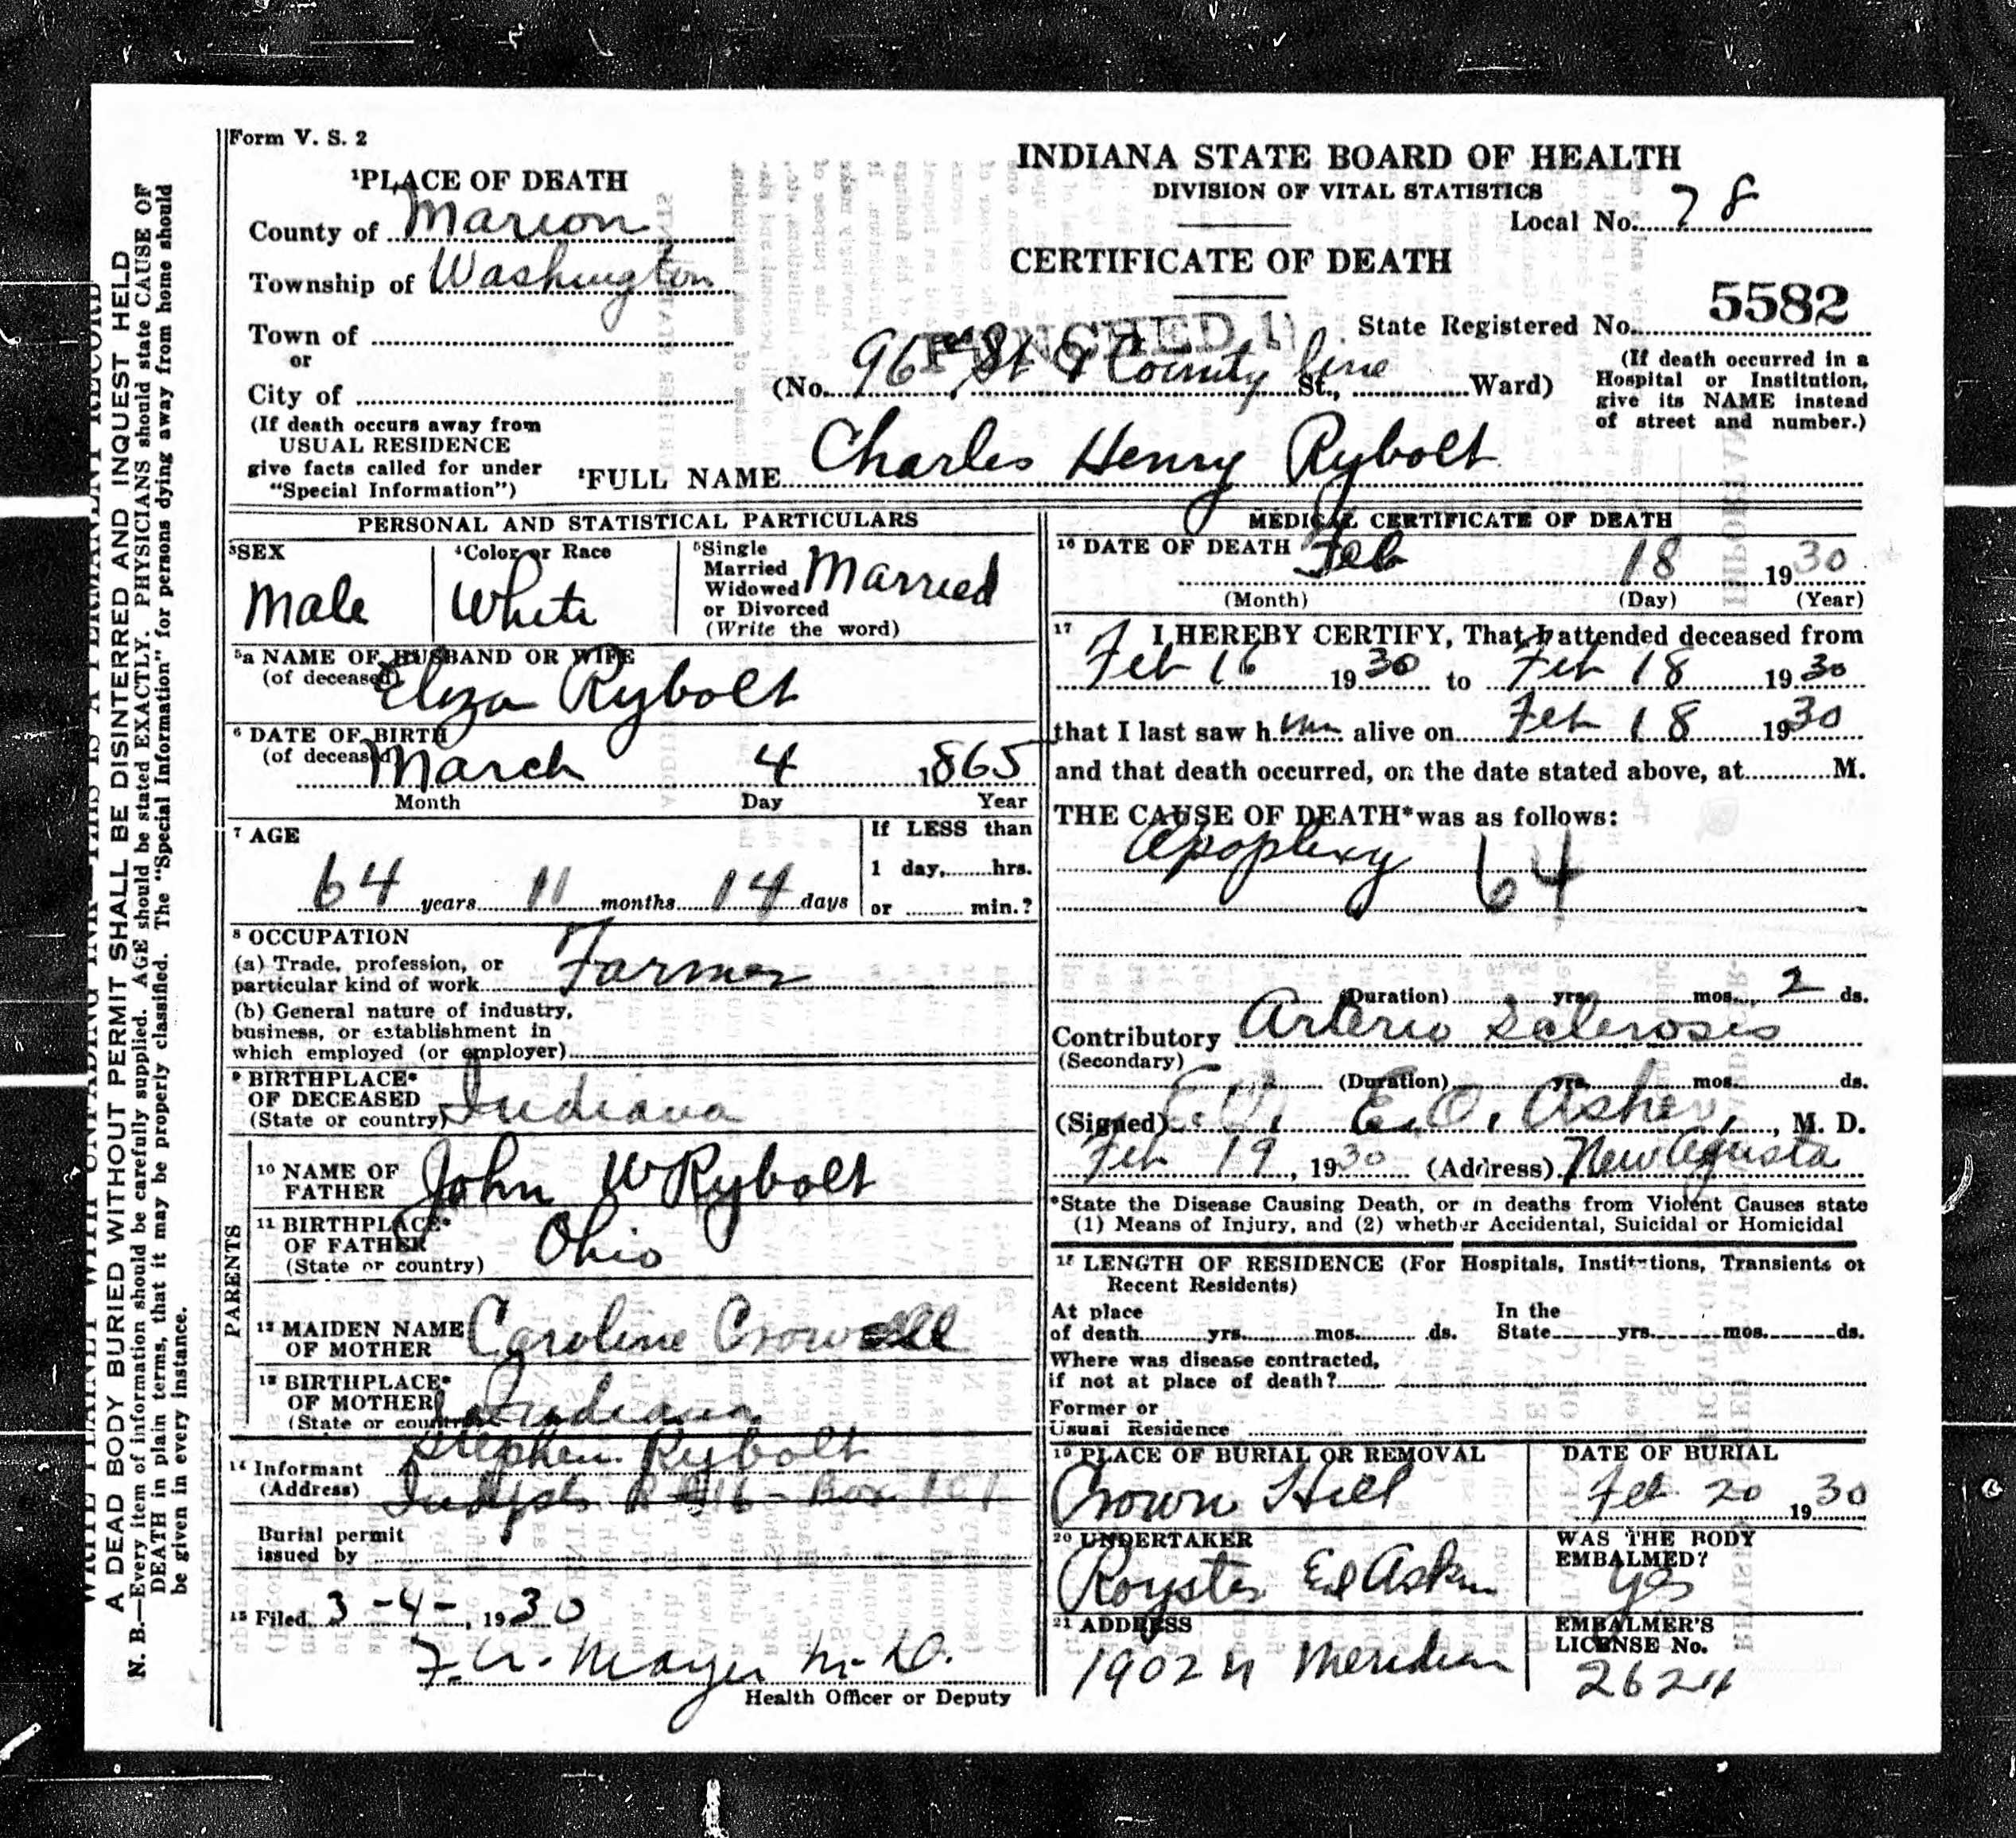 Form V. S. 2
INDIANA STATE BOARD OF HEALTH
DIVISION OF VITAL STATISTICS
Local No. 78
CERTIFICATE OF DEATH
State Registered No. 5582
¹PLACE OF DEATH
County of Marion
Township of Washington
Town of
or
City of
(If death occurs away from
USUAL RESIDENCE
give facts called for under
"Special Information")
PUNCHED
(No. 96th St & County line St., Ward)
(If death occurred in a
Hospital or Institution,
give its NAME instead
of street and number.)
²FULL NAME Charles Henry Rybolt
PERSONAL AND STATISTICAL PARTICULARS
³SEX
Male
⁴Color or Race
White
⁵Single
Married
Widowed
or Divorced
(Write the word)
Married
⁵a NAME OF HUSBAND OR WIFE
(of deceased) Eliza Rybolt
⁶ DATE OF BIRTH
(of deceased) March 4 1865
Month Day Year
⁷ AGE
64 years 11 months 14 days
If LESS than
1 day, hrs.
or min.?
⁸ OCCUPATION
(a) Trade, profession, or
particular kind of work Farmer
(b) General nature of industry,
business, or establishment in
which employed (or employer)
⁹ BIRTHPLACE*
OF DECEASED
(State or country) Indiana
PARENTS
¹⁰ NAME OF
FATHER John W Rybolt
¹¹ BIRTHPLACE*
OF FATHER
(State or country) Ohio
¹² MAIDEN NAME
OF MOTHER Caroline Crowell
¹³ BIRTHPLACE*
OF MOTHER
(State or country) Indiana
¹⁴ Informant Stephen Rybolt
(Address) Indpls R#16 - Box 101
Burial permit
issued by
¹⁵ Filed 3-4-, 1930
F. A. Mayer M.D.
Health Officer or Deputy
MEDICAL CERTIFICATE OF DEATH
¹⁶ DATE OF DEATH Feb 18 1930
(Month) (Day) (Year)
¹⁷ I HEREBY CERTIFY, That I attended deceased from
Feb 16 1930 to Feb 18 1930
that I last saw h im alive on Feb 18 1930
and that death occurred, on the date stated above, at M.
THE CAUSE OF DEATH* was as follows:
Apoplexy 64
(Duration) yrs. mos. 2 ds.
Contributory Arterio Sclerosis
(Secondary)
(Duration) yrs. mos. ds.
(Signed) E. O. Asher, M. D.
Feb 19, 1930 (Address) New Agusta
*State the Disease Causing Death, or in deaths from Violent Causes state
(1) Means of Injury, and (2) whether Accidental, Suicidal or Homicidal
¹⁸ LENGTH OF RESIDENCE (For Hospitals, Institutions, Transients or
Recent Residents)
At place
of death yrs. mos. ds.
In the
State yrs. mos. ds.
Where was disease contracted,
if not at place of death?
Former or
Usual Residence
¹⁹ PLACE OF BURIAL OR REMOVAL
Crown Hill
DATE OF BURIAL
Feb 20 1930
²⁰ UNDERTAKER
Royster & Askin
WAS THE BODY
EMBALMED?
Yes
²¹ ADDRESS
1902 N Meridian
EMBALMER'S
LICENSE No.
2624
WRITE PLAINLY WITH UNFADING INK—THIS IS A PERMANENT RECORD
A DEAD BODY BURIED WITHOUT PERMIT SHALL BE DISINTERRED AND INQUEST HELD
N. B.—Every item of information should be carefully supplied. AGE should be stated EXACTLY. PHYSICIANS should state CAUSE OF
DEATH in plain terms, that it may be properly classified. The "Special Information" for persons dying away from home should
be given in every instance.